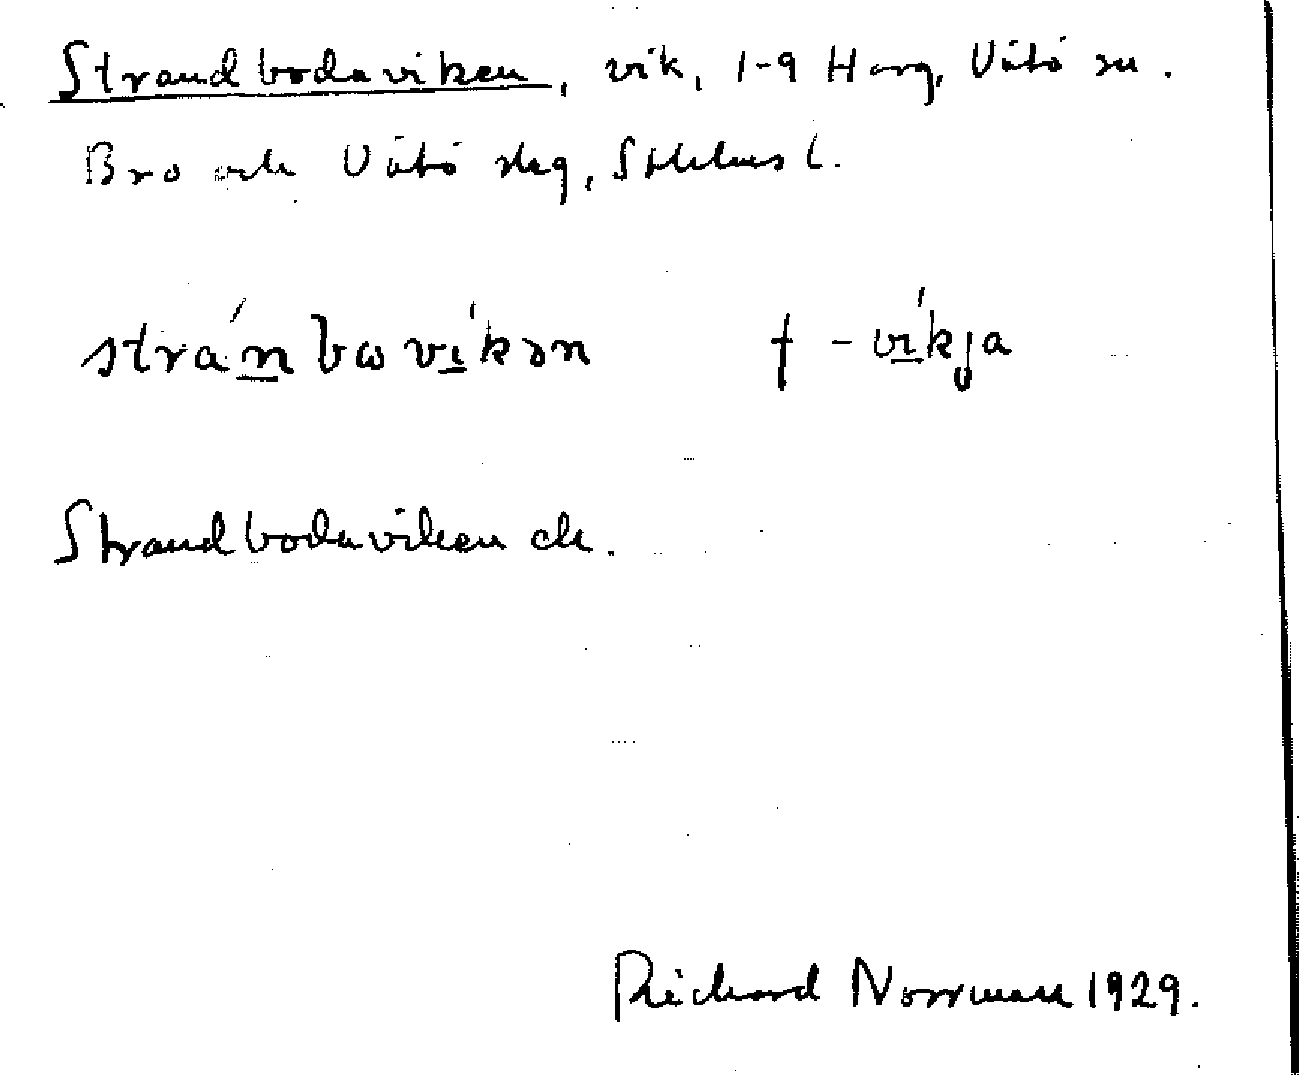 Strandbodaviken, vik, 1-9 Harg, Vätö sn.
Bro och Vätö skg, Sthlms l.
strán bω víkən † - víkja
Strandbodaviken ek.
Richard Norrman 1929.